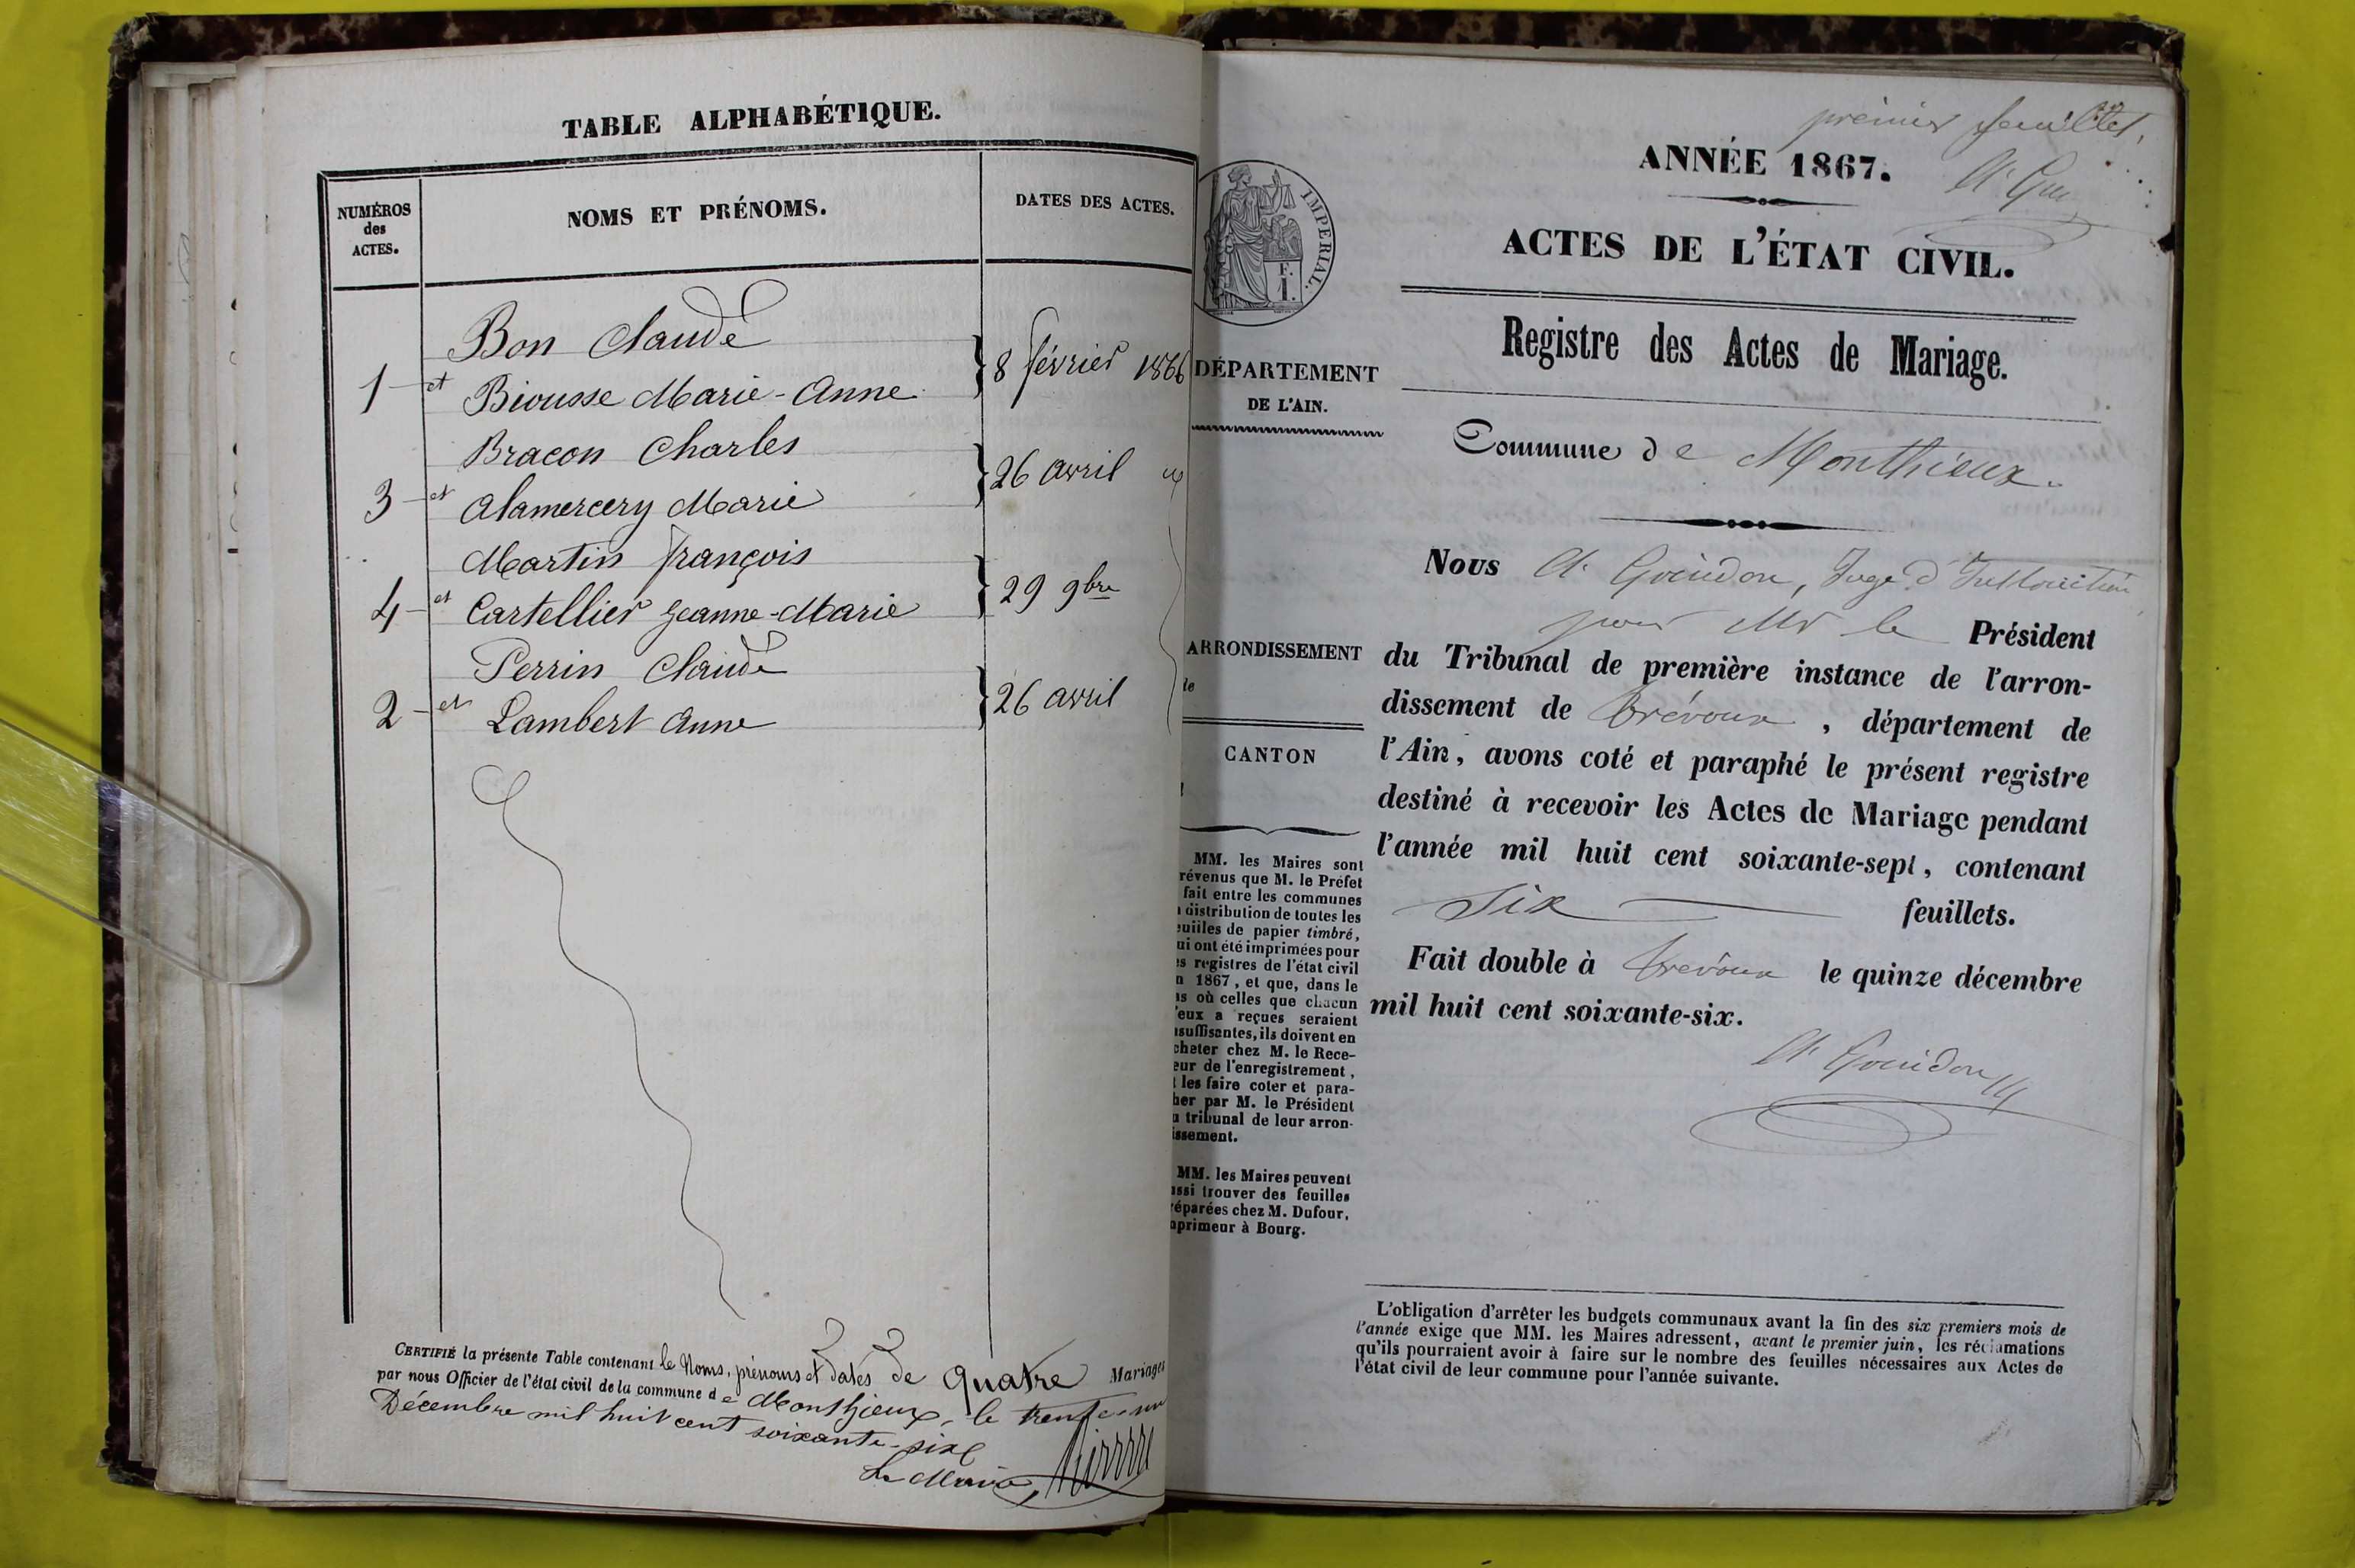 TABLE ALPHABÉTIQUE.
NUMÉROS
des
ACTES.
NOMS ET PRÉNOMS.
DATES DES ACTES.
Bon Claude
1 et Biousse Marie-Anne
8 février 1866
Bracon Charles
3 et Alamercery Marie
26 avril
Martin françois
4 et Cartellier Jeanne-Marie
29 9bre
Perrin Claude
2 et Lambert Anne
26 avril
CERTIFIÉ la présente Table contenant le Noms, prénoms et dates de Quatre Mariages
par nous Officier de l'état civil de la commune de Monthieux, le trente-un
Décembre mil huit cent soixante-six
Le Maire,
premier feuillet,
ANNÉE 1867.
A. Gui
ACTES DE L'ÉTAT CIVIL.
IMPERIAL.
F.
1.
Registre des Actes de Mariage.
DÉPARTEMENT
DE L'AIN.
Commune de Monthieux.
Nous A. Goindon, Juge d'Instruction
pour Mr le Président
ARRONDISSEMENT
de
CANTON
du Tribunal de première instance de l'arron-
dissement de Trévoux, département de
l'Ain, avons coté et paraphé le présent registre
destiné à recevoir les Actes de Mariage pendant
l'année mil huit cent soixante-sept, contenant
Six feuillets.
Fait double à Trévoux le quinze décembre
mil huit cent soixante-six.
A. Goindon
MM. les Maires sont
révenus que M. le Préfet
fait entre les communes
distribution de toutes les
euilles de papier timbré,
ui ont été imprimées pour
es registres de l'état civil
n 1867, et que, dans le
as où celles que chacun
'eux a reçues seraient
nsuffisantes, ils doivent en
cheter chez M. le Rece-
eur de l'enregistrement,
t les faire coter et para-
her par M. le Président
u tribunal de leur arron-
issement.
MM. les Maires peuvent
ussi trouver des feuilles
réparées chez M. Dufour,
mprimeur à Bourg.
L'obligation d'arrêter les budgets communaux avant la fin des six premiers mois de
l'année exige que MM. les Maires adressent, avant le premier juin, les réclamations
qu'ils pourraient avoir à faire sur le nombre des feuilles nécessaires aux Actes de
l'état civil de leur commune pour l'année suivante.